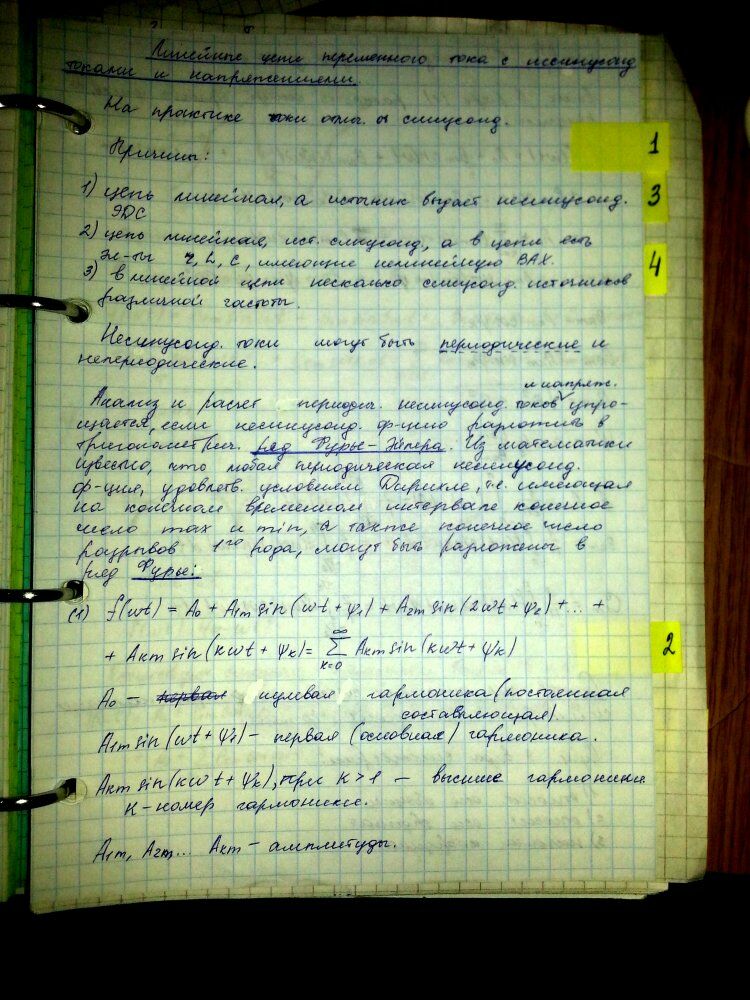 Линейные цепи переменного тока с несинусоид
токами и напряжениями.
На практике токи отлич. от синусоид.
Причины:
1
1) цепь линейная, а источник выдает несинусоид.
ЭДС
3
2) цепь линейная, ист. синусоид, а в цепи есть
эл-ты r, L, C, имеющие нелинейную ВАХ.
4
3) в линейной цепи несколько синусоид. источников
различной частоты.
Несинусоид. токи могут быть периодические и
непериодические.
и напряж.
Анализ и расчет периодич. несинусоид. токов упро-
щается, если несинусоид. ф-цию разложить в
тригонометрич. ряд Фурье-Эйлера. Из математики
известно, что любая периодическая несинусоид.
ф-ция, удовлетв. условиям Дирихле, т.е. имеющая
на конечном временном интервале конечное
число max и min, а также конечное число
разрывов 1го рода, могут быть разложены в
ряд Фурье:
(1) f(ωt) = A₀ + A₁m sin(ωt + ψ₁) + A₂m sin(2ωt + ψ₂) + ... +
+ Aкm sin(кωt + ψк) = ∑ к=0 ∞ Aкm sin(кωt + ψк)
2
A₀ – первая нулевая гармоника (постоянная
составляющая)
A₁m sin(ωt + ψ₁) – первая (основная) гармоника.
Aкm sin(кωt + ψк), при к > 1 – высшие гармоники
к – номер гармоники.
A₁m, A₂m ... Aкm – амплитуды.